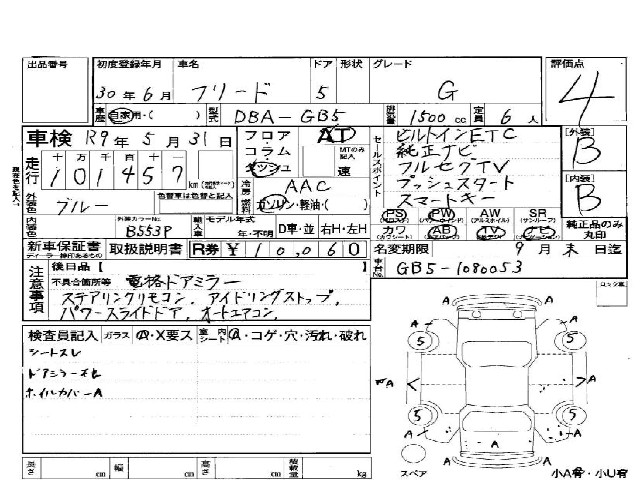 出品番号 初度登録年月 車名 ドア 形状 グレード 評価点
30年6月 フリード 5 G 4
車歴 自家用・( ) 型式 DBA-GB5 排気量 1500cc 定員 6人
車検 R9年5月31日 フロア・コラム・インシュ AT MTのみ記入 速
走行 十万千百十一 101457 km
冷房 AAC
燃料 ガソリン・軽油・( )
外装色 ブルー 色替車は色替と記入
内装色 外装カラーNo. B553P 輸入車 モデル年式 年・不明 D車・並 右H・左H
セールスポイント
ビルトインETC
純正ナビ
フルセグTV
プッシュスタート
スマートキー
PS PW AW SR
(パワステ) (パワーウィンドウ) (アルミホイル) (サンルーフ)
カワ AB TV ナビ
純正品のみ丸印
[外装] B
[内装] B
新車保証書 取扱説明書 R券 ¥10,060 名変期限 9月末日迄
ディーラー捺印あるもの
車台No. GB5-1080053
注意事項
後日品【 】
不具合箇所等 電格ドアミラー
ステアリングリモコン, アイドリングストップ,
パワースライドドア, オートエアコン,
検査員記入 ガラス A・X要ス 室内 シート A・コゲ・穴・汚れ・破れ
シートスレ
ホイルカバーA
A A
5 5
A A
5 5
A A A
スペア
小A有・小U有
長さ cm 幅 cm 高さ cm 積載量 kg